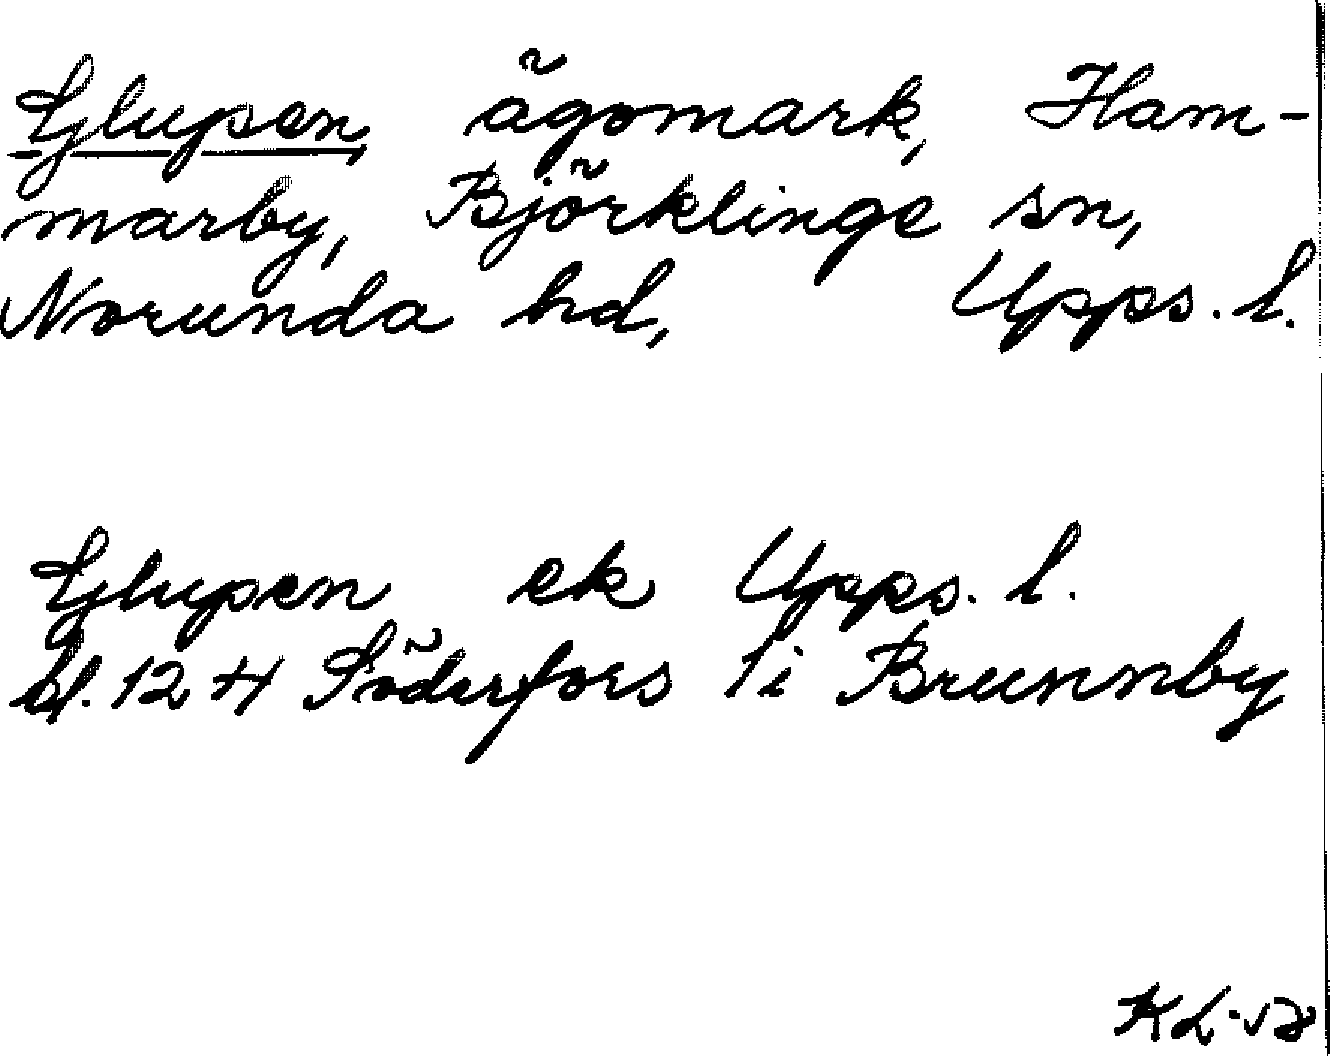 Glupen, ägomark, Ham-
marby, Björklinge sn,
Norunda hd, Upps. l.
Glupen ek Upps. l.
bl. 124 Söderfors 1i Brunnby